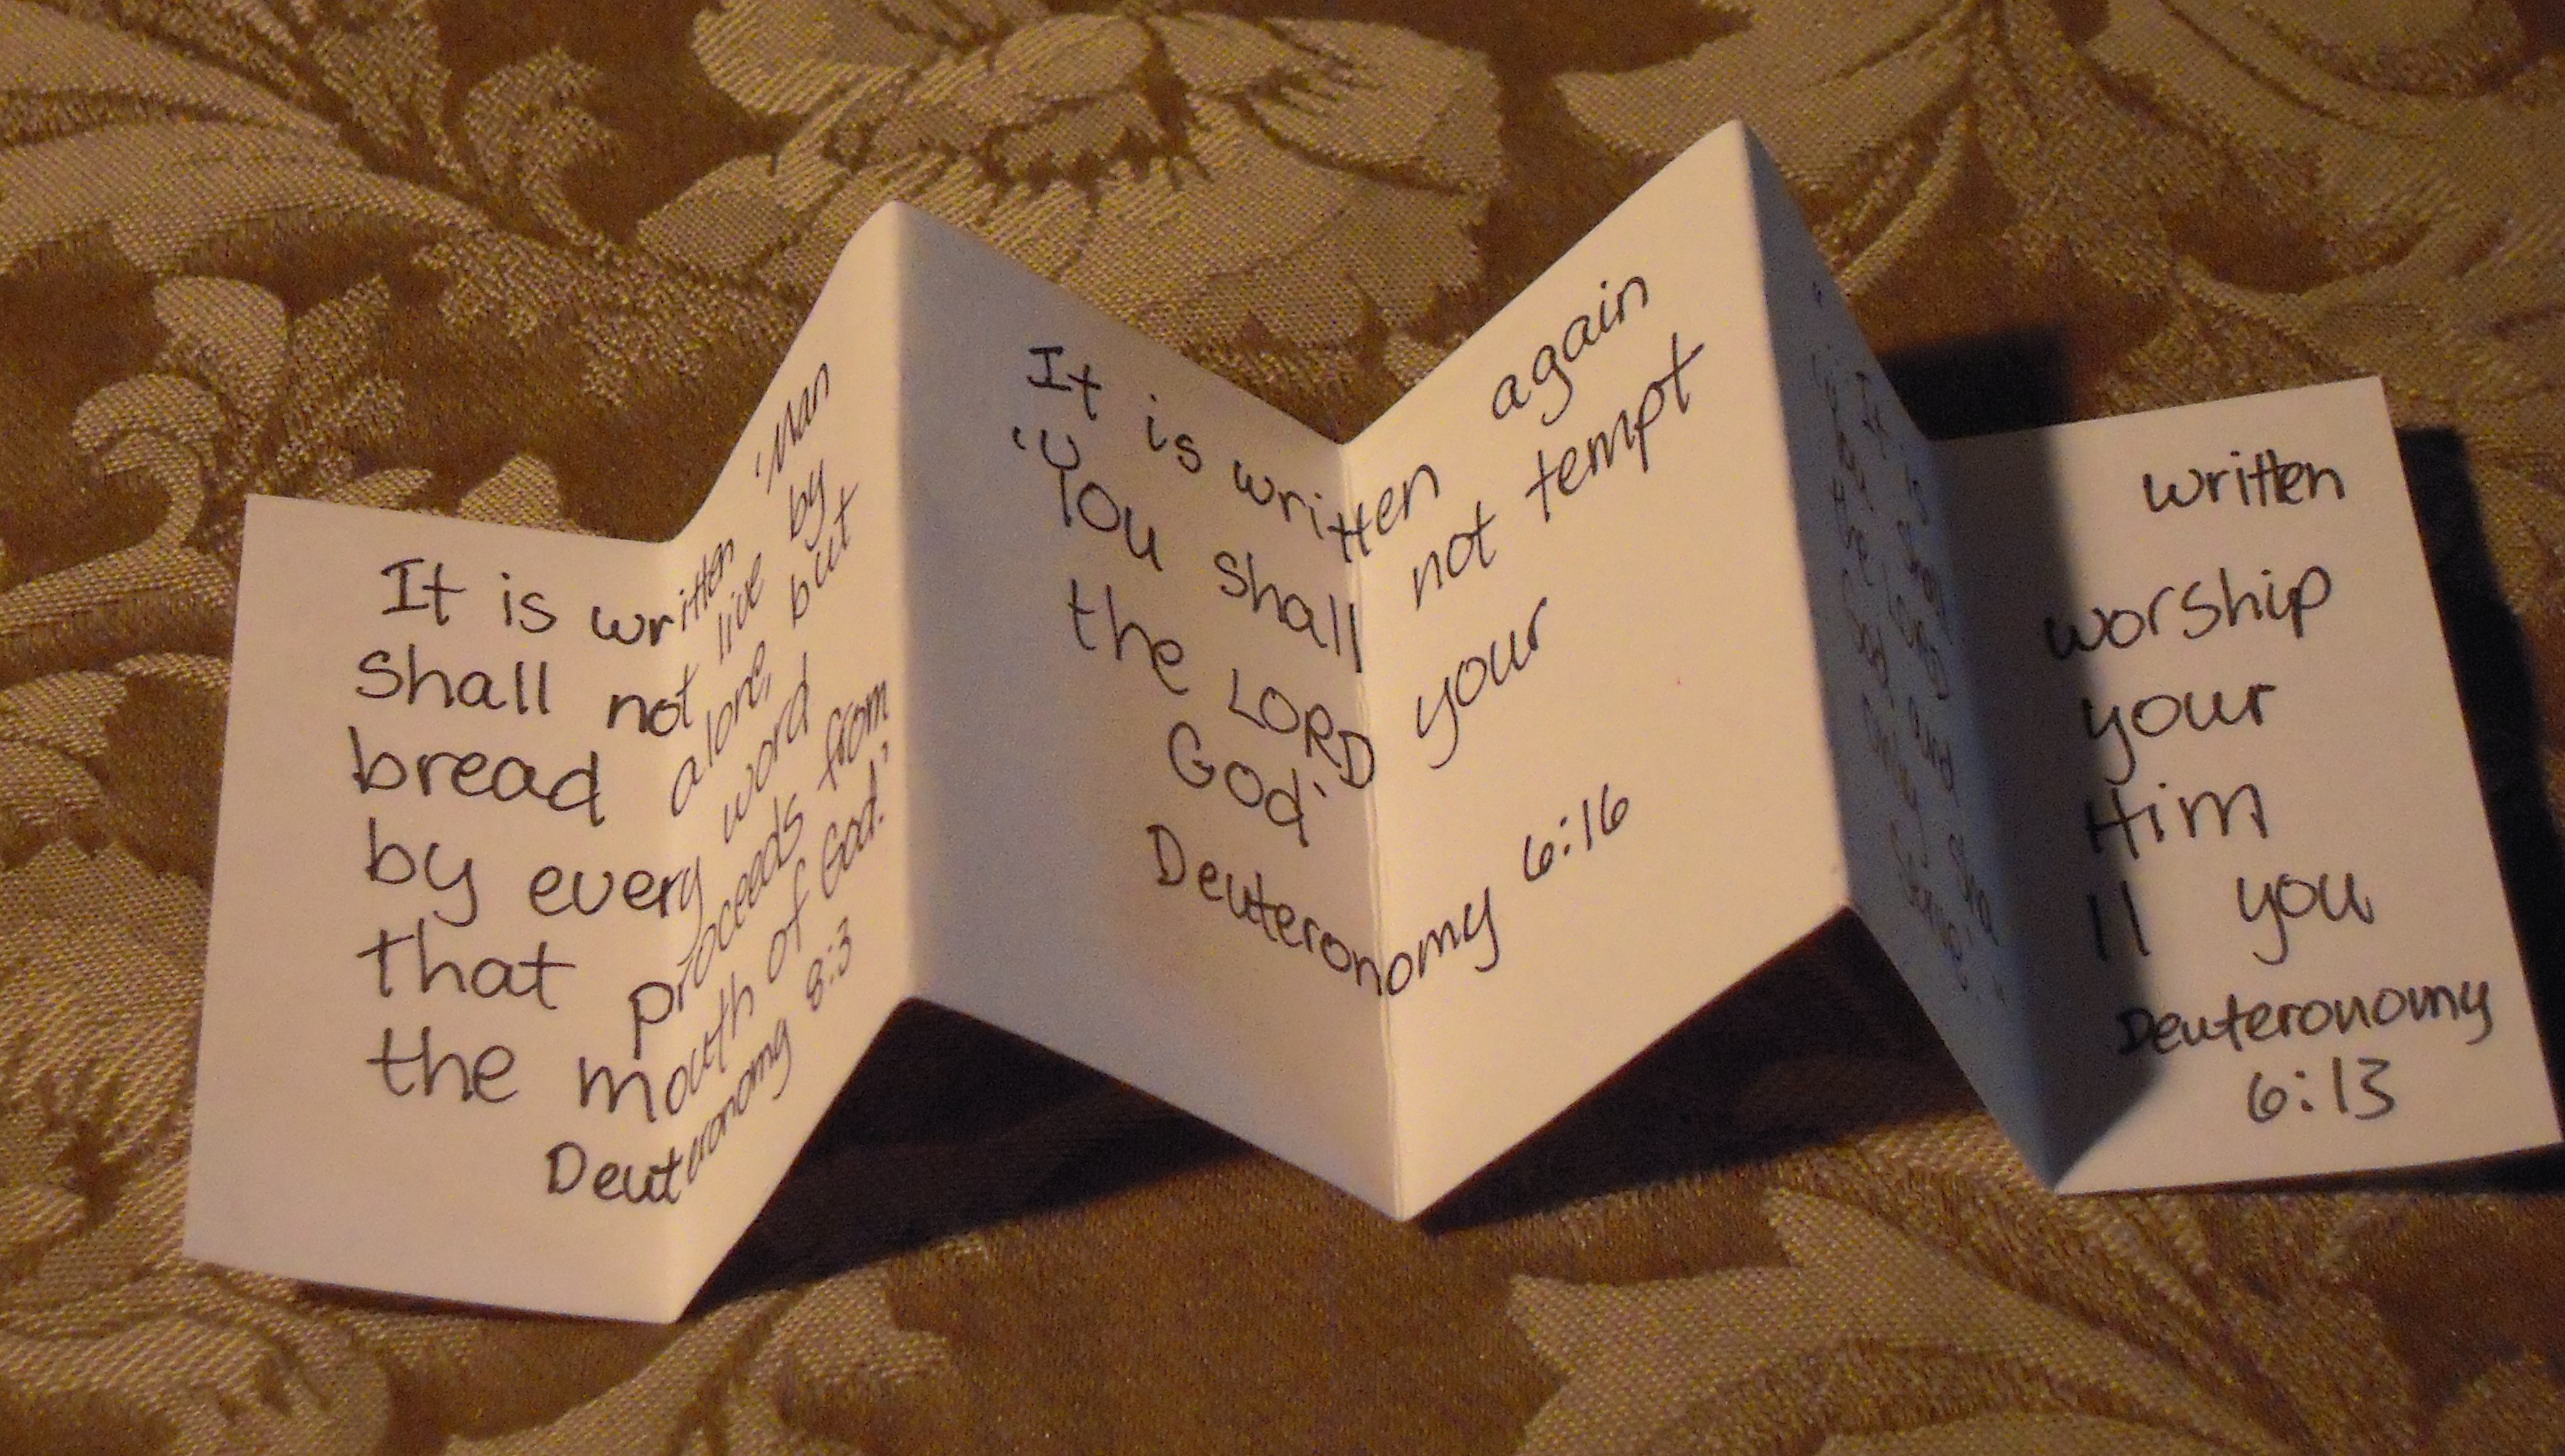 It is written 'Man
shall not live by
bread alone, but
by every word
that proceeds from
the mouth of God.'
Deuteronomy 8:3
It is written again
'You shall not tempt
the LORD your
God.'
Deuteronomy 6:16
It is written
'You shall worship
the LORD your
God, and Him
only shall you
serve.'
Deuteronomy
6:13